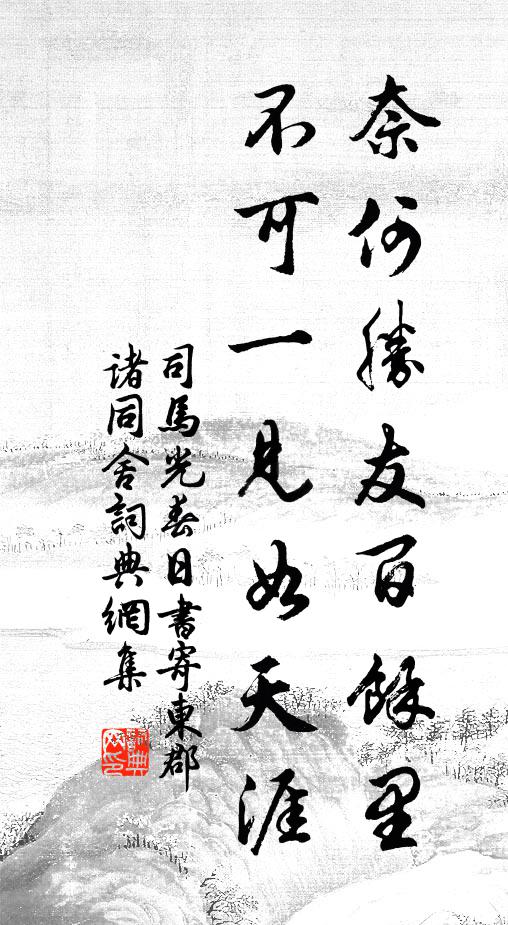 奈何勝友百餘里
不可一見如天涯
司馬光春日書寄東郡
诸同舍詞典網集